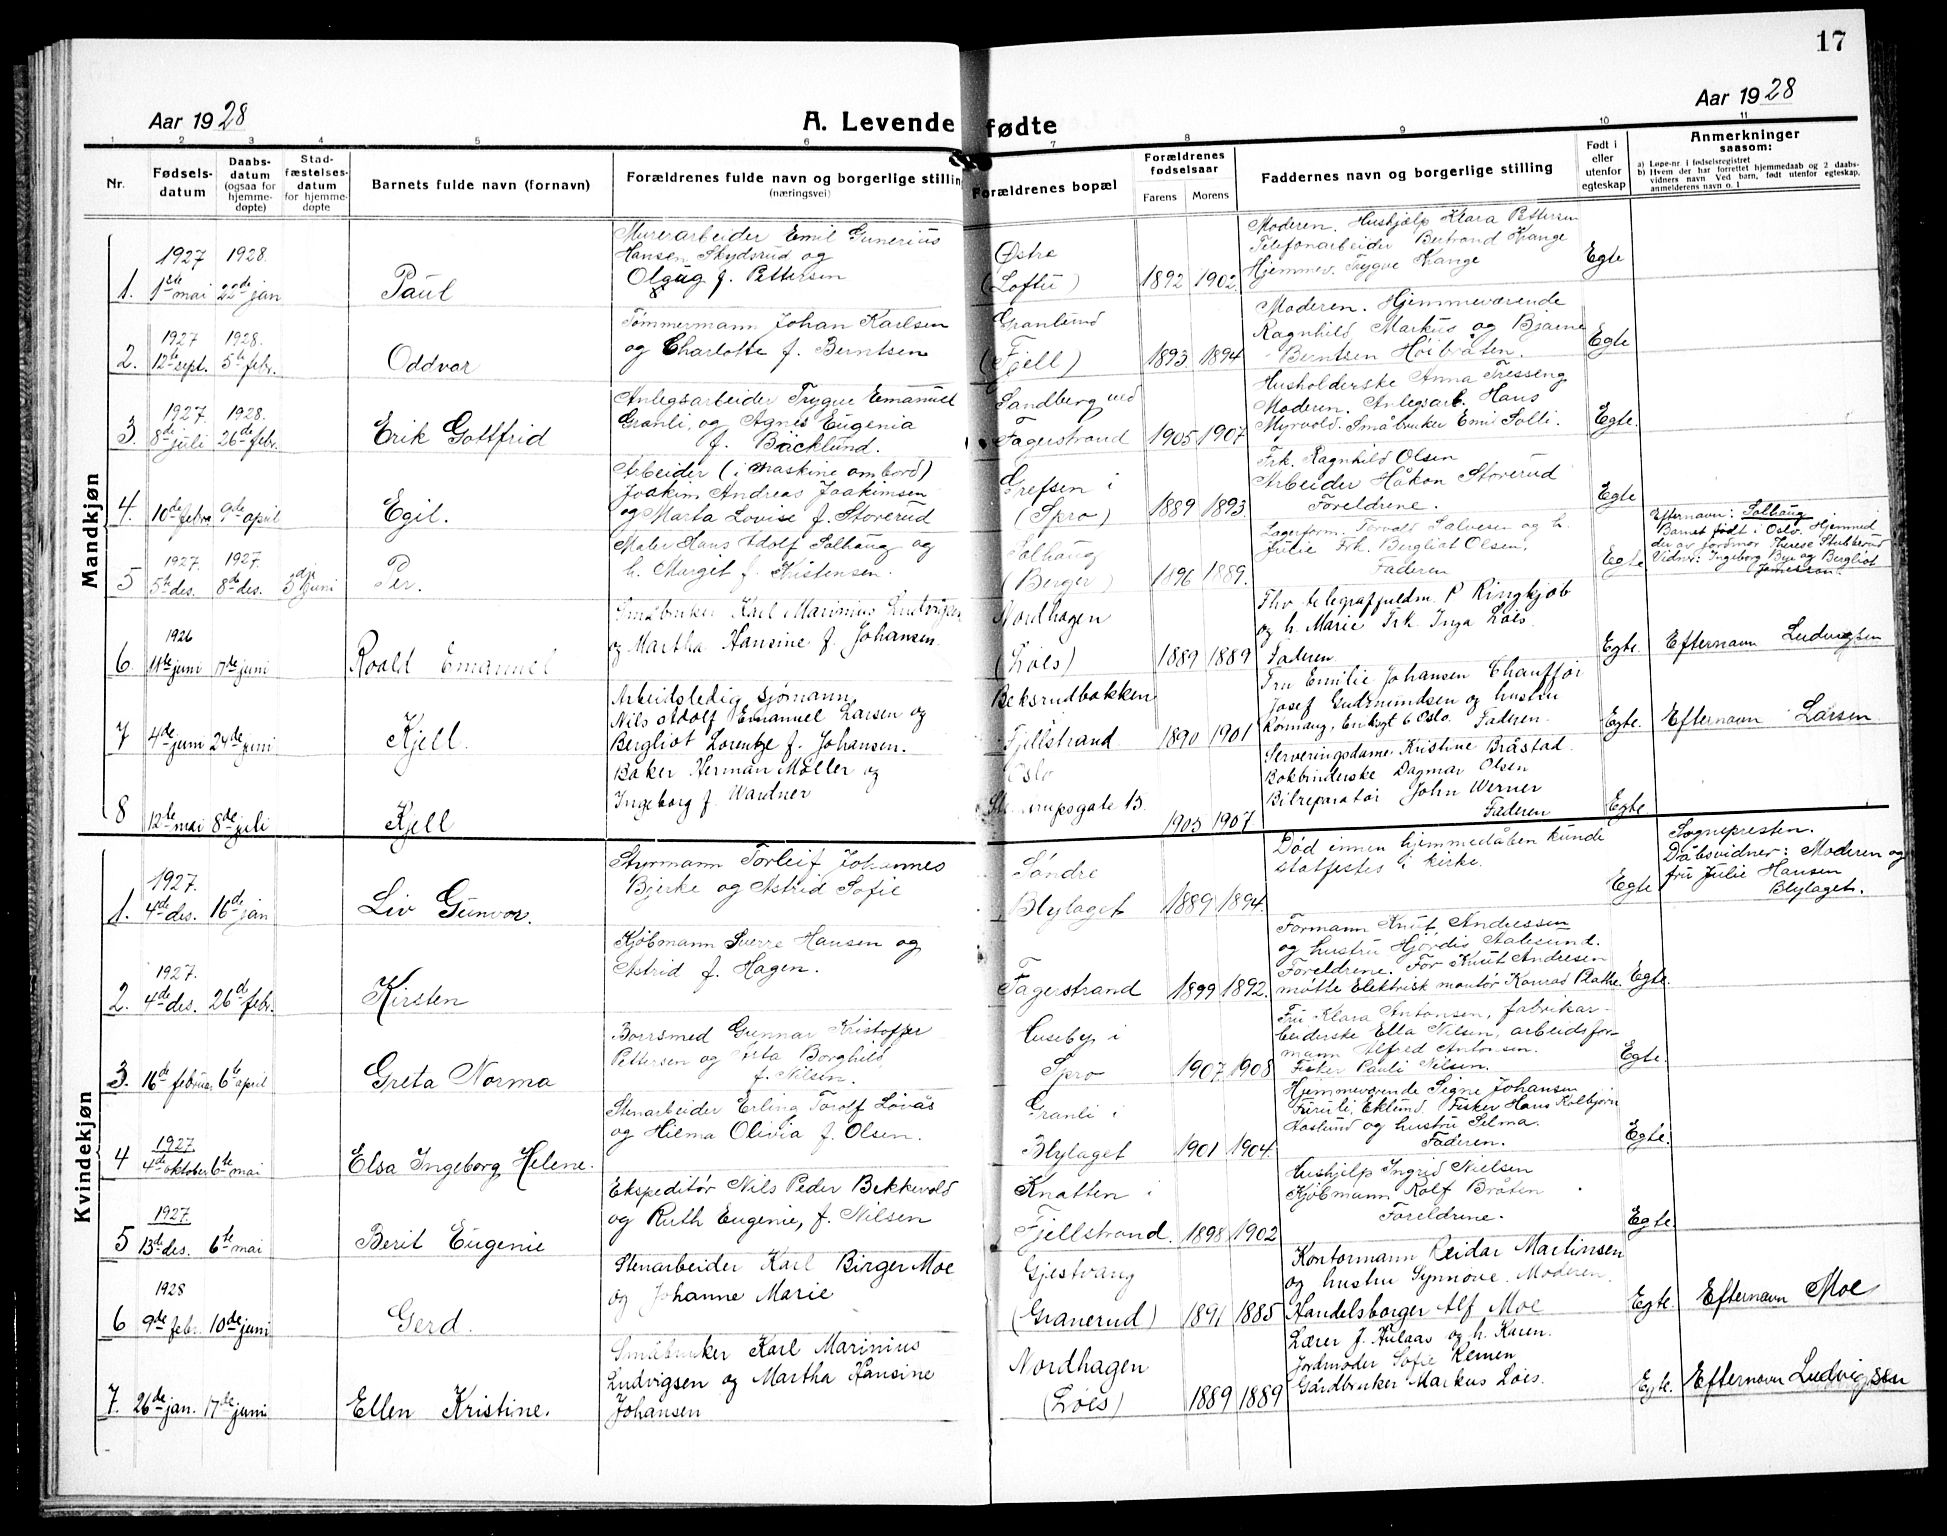 17
Aar 1928
A. Levende fødte
Aar 1928
1 2 3 4 5 6 7 8 9 10 11
Nr.
Fødsels-
datum
Daabs-
datum
(ogsaa for
hjemme-
døpte)
Stad-
fæstelses-
datum
for hjemme-
døpte
Barnets fulde navn (fornavn)
Forældrenes fulde navn og borgerlige stilling
(næringsvei)
Forældrenes bopæl
Forældrenes
fødselsaar
Farens Morens
Faddernes navn og borgerlige stilling
Født i
eller
utenfor
egteskap
Anmerkninger
saasom:
a) Løpe-nr. i fødselsregistret
b) Hvem der har forrettet hjemmedaab og 2 daabs-
vidners navn Ved barn, født utenfor egteskap,
anmelderens navn o. l
Mandkjøn
1. 1927 1ste mai 1928. 22de jan
Paul
Murerarbeider Emil Gunerius
Hansen Skydsrud og
Olgug f. Pettersen
Østre
(Loftu)
1892 1902.
Moderen. Hushjælp Klara Pettersen
Telefonarbeider Bertrand Krange
Hjemmev. Trygve Krange
Egte
2. 1927 12te sept. 1928. 5te febr.
Oddvar
Tømmermann Johan Karlsen
og Charlotte f. Berntsen
Granlund
(Fjell)
1893. 1894
Moderen. Hjemmeværende
Ragnhild Markus og Bjarne
Berntsen Høibråten.
Egte
3. 1927 8de juli 1928. 26de febr.
Erik Gottfrid
Anlegsarbeider Trygve Emanuel
Granli, og Agnes Eugenia
f. Bäcklund.
Sandberg ved
Fagerstrand
1905 1907
Husholderske Anna Tresseng
Moderen. Anlegsarb. Hans
Myrvold. Småbruker Emil Solli.
Egte.
4. 10de febru 9de april
Egil.
Arbeider (i maskine ombord)
Joakim Andreas Joakimsen
og Marta Lovise f. Storerud
Grefsen i
(Spro)
1889 1893.
Frk. Ragnhild Olsen
Arbeider Håkon Storerud
Foreldrene.
Egte
5 1927. 5te des. 1927. 8de des. 3dje juni
Per.
Maler Hans Adolf Solhaug og
h. Marget f. Kristensen.
Solhaug
(Berger)
1896 1889.
Lagerform. Torvald Salvesen og h.
Julie Frk. Bergliot Olsen.
Faderen
Egte
Efternavn: Solhaug
Barnet født i Oslo. Hjemmed
der av jordmor Therese Stubberud
Vidner: Ingeborg Bye og Bergliot
Jamesson.
6 1926 11te juni 17de juni
Roald Emanuel
Småbruker Karl Marinius Ludvigsen
og Martha Hansine f. Johansen.
Nordhagen
(Løes)
1889 1889
Thv. telegraffuldm. P Ringkjøb
og h. Marie Frk. Inga Løes.
Faderen
Egte.
Efternavn Ludvigsen
7 4de juni 24de juni
Kjell.
Arbeidsledig sjømann
Nils Adolf Emanuel Larsen og
Bergliot Lorentze f. Johansen.
Beksrudbakken
Fjellstrand
1890 1901
Fru Emilie Johansen Chauffør
Josef Gudmundsen og hustru
Rønnaug, Enkegt 6 Oslo. Faderen.
Egte.
Efternavn Larsen
8 12te mai 8de juli
Kjell
Baker Herman Møller og
Ingeborg f. Wardner
Oslo
1905 1907
Serveringsdame Kristine Bråstad.
Bokbinderske Dagmar Olsen
Bilreparatør John Werner
Faderen
Egte
Kvindekjøn
1. 1927. 4de des. 16de jan
Liv Gunvor.
Styrmann Torleif Johannes
Bjerke og Astrid Sofie
Søndre
Blylaget
1889 1894.
Død innen hjemmedåben kunde
statfestes i kirke.
Egte
Sognepresten.
Dåbsvidner: Moderen og
fru Julie Hansen
Blylaget.
2. 1927. 4de des. 26de febr.
Kirsten
Kjøbmann Sverre Hansen og
Astrid f. Hagen.
Fagerstrand
1899 1892.
Formann Knut Andressen
og hustru Hjørdis Aalesund.
Foreldrene. For Knut Andersen
møtte Elektrisk montør Konrad Plathe.
Egte.
3. 16de februar 6te april
Greta Norma
Borrsmed Gunnar Kristoffer
Pettersen og Asta Borghild
f. Nilsen.
Huseby i
Spro
1907 1908
Fru Klara Antonsen, fabrikar-
beiderske Ella Nilsen, arbeidsfor-
mann Alfred Antonsen.
Fisker Pauli Nilsen.
Egte.
4 1927. 4de oktober 6te mai
Elsa Ingeborg Helene.
Stenarbeider Erling Torolf Løvås
og Hilma Olivia f. Olsen.
Granli i
Blylaget
1901 1904
Hjemmeværende Signe Johansen
Furuli, Eklund, Fisker Hans Kolbjørn
Haslund og hustru Selma.
Faderen.
Egte.
5 1927. 13de des. 6te mai
Beril Eugenie
Ekspeditør Nils Peder Bekkevold
og Ruth Eugenie, f. Nilsen
Knatten i
Fjellstrand.
1898 1902
Hushjelp Ingrid Nielsen
Kjøbmann Rolf Bråten
Foreldrene.
Egte
6 1928 9de febr. 10de juni
Gerd.
Stenarbeider Karl Birger Moe
og Johanne Marie
Gjestvang
(Granerud)
1891 1885
Kontormann Reidar Martinsen
og hustru Synnøve. Moderen.
Handelsborger Alf Moe
Egte.
Efternavn Moe
7. 26de jan. 17de juni
Ellen Kristine.
Småbruker Karl Marinius
Ludvigsen og Martha Hansine
Johansen
Nordhagen
(Løes)
1889 1889
Lærer J. Aulaas og h. Karen.
Jordmoder Sofie Remen
Gårdbruker Markus Løes.
Egte.
Efternavn Ludvigsen